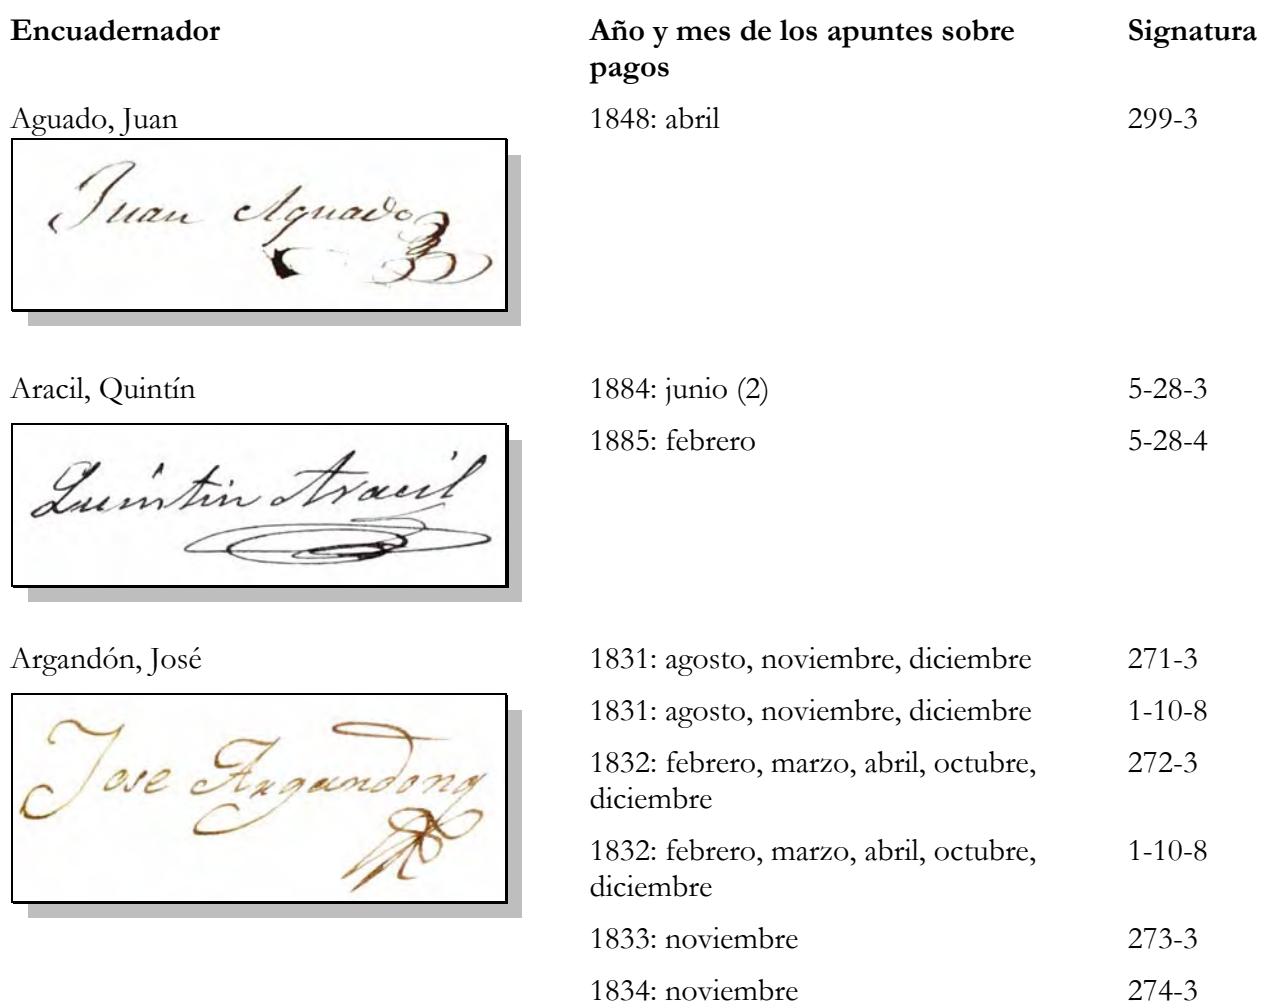 Encuadernador Año y mes de los apuntes sobre pagos Signatura
Aguado, Juan 1848: abril 299-3
Juan Aguado
Aracil, Quintín 1884: junio (2) 5-28-3
1885: febrero 5-28-4
Quintin Aracil
Argandón, José 1831: agosto, noviembre, diciembre 271-3
1831: agosto, noviembre, diciembre 1-10-8
Jose Argandona
1832: febrero, marzo, abril, octubre, 272-3
diciembre
1832: febrero, marzo, abril, octubre, 1-10-8
diciembre
1833: noviembre 273-3
1834: noviembre 274-3